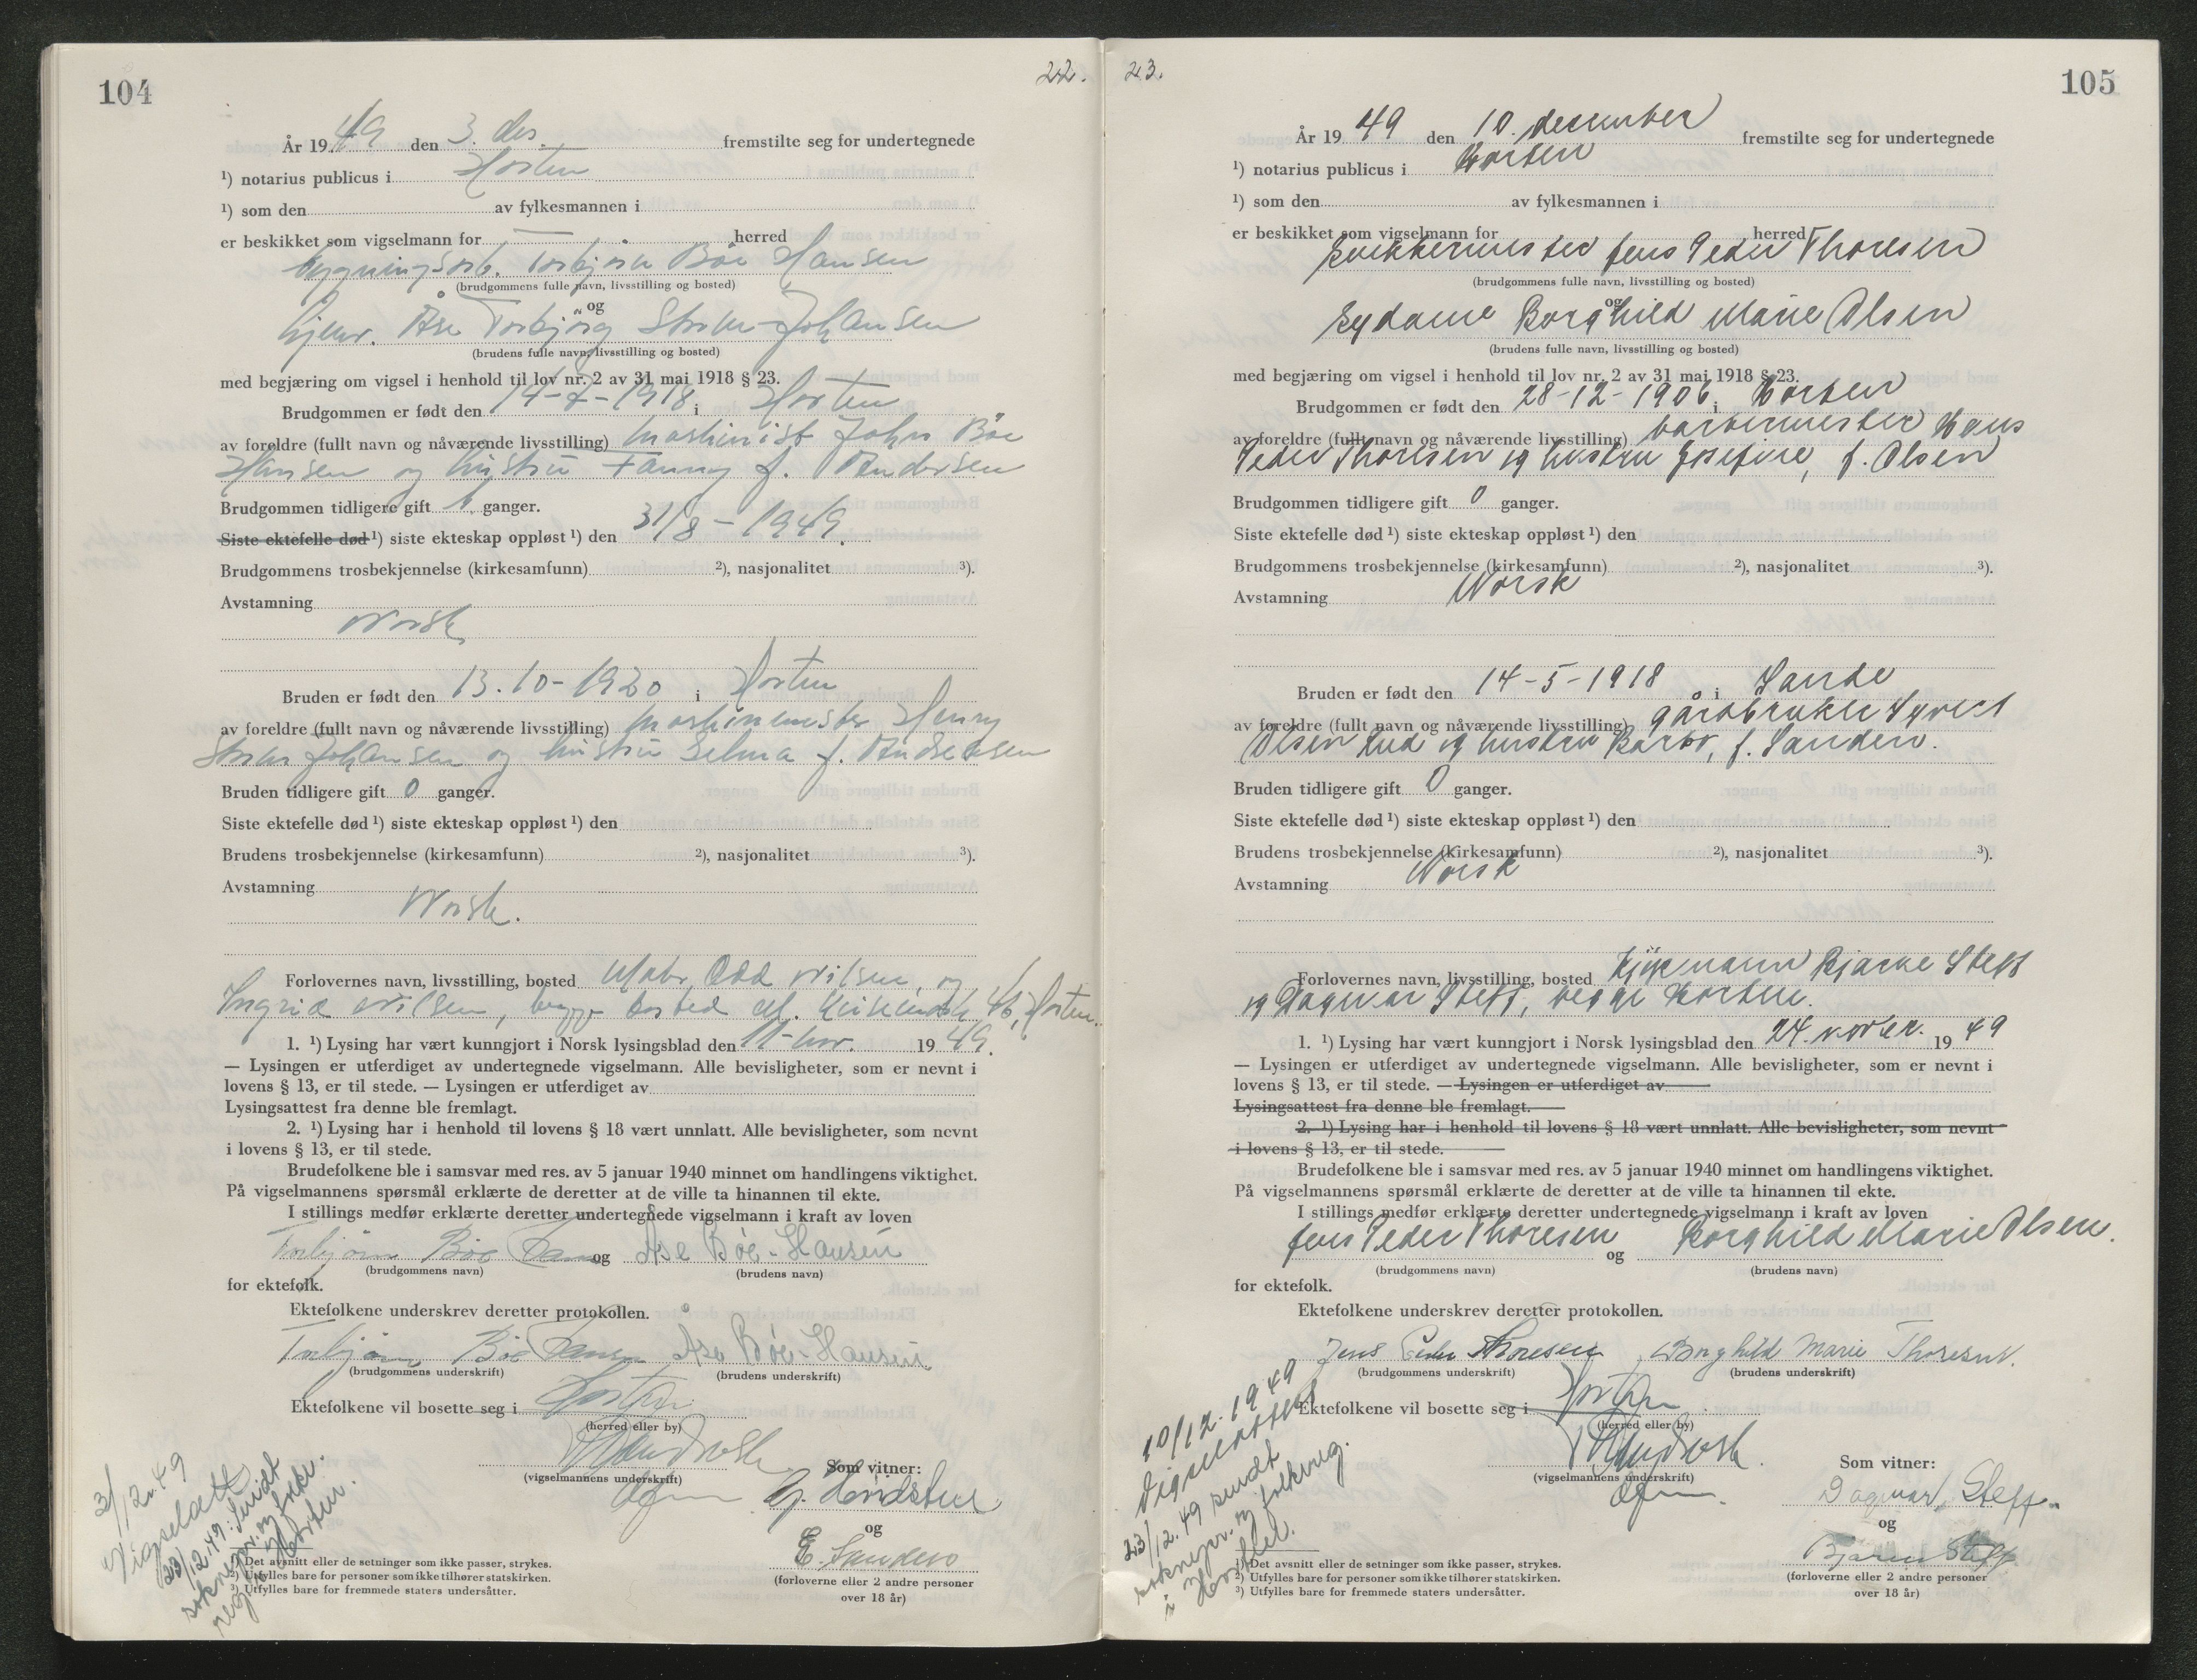 104
22.
År 19 49 den 3. des. fremstilte seg for undertegnede
¹) notarius publicus i Horten
¹) som den av fylkesmannen i
er beskikket som vigselmann for herred
bygningsarb. Torbjørn Bøe Hansen
(brudgommens fulle navn, livsstilling og bosted)
og
hjemv. Åse Torbjørg Strøm-Johansen
(brudens fulle navn, livsstilling og bosted)
med begjæring om vigsel i henhold til lov nr. 2 av 31 mai 1918 § 23.
Brudgommen er født den 14-7-1918 i Horten
av foreldre (fullt navn og nåværende livsstilling) maskinist John Bøe
Hansen og hustru Fanny f. Andersen
Brudgommen tidligere gift 1 ganger.
Siste ektefelle død ¹) siste ekteskap oppløst ¹) den 31/8-1949.
Brudgommens trosbekjennelse (kirkesamfunn) ²), nasjonalitet ³).
Avstamning
Norsk
Bruden er født den 13.10-1920 i Horten
av foreldre (fullt navn og nåværende livsstilling) maskinmester Henry
Strøm Johansen og hustru Selma f. Andersen
Bruden tidligere gift 0 ganger.
Siste ektefelle død ¹) siste ekteskap oppløst ¹) den
Brudens trosbekjennelse (kirkesamfunn) ²), nasjonalitet ³).
Avstamning
Norsk.
Forlovernes navn, livsstilling, bosted Odd Nilsen, og
Ingrid Nilsen, begge bosted 46, Horten.
1. ¹) Lysing har vært kunngjort i Norsk lysingsblad den 11-nov. 19 49.
— Lysingen er utferdiget av undertegnede vigselmann. Alle bevisligheter, som er nevnt i
lovens § 13, er til stede. — Lysingen er utferdiget av
Lysingsattest fra denne ble fremlagt.
2. ¹) Lysing har i henhold til lovens § 18 vært unnlatt. Alle bevisligheter, som nevnt
i lovens § 13, er til stede.
Brudefolkene ble i samsvar med res. av 5 januar 1940 minnet om handlingens viktighet.
På vigselmannens spørsmål erklærte de deretter at de ville ta hinannen til ekte.
I stillings medfør erklærte deretter undertegnede vigselmann i kraft av loven
Torbjørn Bøe Hansen og Åse Bøe-Hansen
(brudgommens navn) (brudens navn)
for ektefolk.
Ektefolkene underskrev deretter protokollen.
Torbjørn Bøe Hansen Åse Bøe-Hansen
(brudgommens underskrift) (brudens underskrift)
Ektefolkene vil bosette seg i Horten
(herred eller by)
Som vitner:
(vigselmannens underskrift)
og
E. Sanders
(forloverne eller 2 andre personer
over 18 år)
3/12.49
Vigselatt.
23/12.49: sendt
soknepr. og folke-
reg. i Horten.
¹) Det avsnitt eller de setninger som ikke passer, strykes.
²) Utfylles bare for personer som ikke tilhører statskirken.
³) Utfylles bare for fremmede staters undersåtter.
23.
105
År 19 49 den 10. december fremstilte seg for undertegnede
¹) notarius publicus i Horten
¹) som den av fylkesmannen i
er beskikket som vigselmann for herred
Snekkermester Jens Peder Thoresen
(brudgommens fulle navn, livsstilling og bosted)
og
Sydame Borghild Marie Olsen
(brudens fulle navn, livsstilling og bosted)
med begjæring om vigsel i henhold til lov nr. 2 av 31 mai 1918 § 23.
Brudgommen er født den 28-12-1906 i Horten
av foreldre (fullt navn og nåværende livsstilling) barbermester Hans
Peder Thoresen og hustru Josefine, f. Olsen
Brudgommen tidligere gift 0 ganger.
Siste ektefelle død ¹) siste ekteskap oppløst ¹) den
Brudgommens trosbekjennelse (kirkesamfunn) ²), nasjonalitet ³).
Avstamning Norsk
Bruden er født den 14-5-1918 i Sande
av foreldre (fullt navn og nåværende livsstilling) gårdbruker Syvert
Olsen Rud og hustru Barbo, f. Sanden.
Bruden tidligere gift 0 ganger.
Siste ektefelle død ¹) siste ekteskap oppløst ¹) den
Brudens trosbekjennelse (kirkesamfunn) ²), nasjonalitet ³).
Avstamning Norsk
Forlovernes navn, livsstilling, bosted Kjøpmann Bjarne Steff
og Dagmar Steff, begge Horten.
1. ¹) Lysing har vært kunngjort i Norsk lysingsblad den 24. novbr. 19 49
— Lysingen er utferdiget av undertegnede vigselmann. Alle bevisligheter, som er nevnt i
lovens § 13, er til stede. — Lysingen er utferdiget av
Lysingsattest fra denne ble fremlagt.
2. ¹) Lysing har i henhold til lovens § 18 vært unnlatt. Alle bevisligheter, som nevnt
i lovens § 13, er til stede.
Brudefolkene ble i samsvar med res. av 5 januar 1940 minnet om handlingens viktighet.
På vigselmannens spørsmål erklærte de deretter at de ville ta hinannen til ekte.
I stillings medfør erklærte deretter undertegnede vigselmann i kraft av loven
Jens Peder Thoresen og Borghild Marie Olsen.
(brudgommens navn) (brudens navn)
for ektefolk.
Ektefolkene underskrev deretter protokollen.
Jens Peder Thoresen Borghild Marie Thoresen.
(brudgommens underskrift) (brudens underskrift)
Ektefolkene vil bosette seg i Horten
(herred eller by)
Som vitner:
(vigselmannens underskrift)
Dagmar Steff.
og
Bjarne Steff
(forloverne eller 2 andre personer
over 18 år)
10/12.1949
Vigselattest
23/12.49 sendt
soknepr. og folkereg.
i Horten.
¹) Det avsnitt eller de setninger som ikke passer, strykes.
²) Utfylles bare for personer som ikke tilhører statskirken.
³) Utfylles bare for fremmede staters undersåtter.